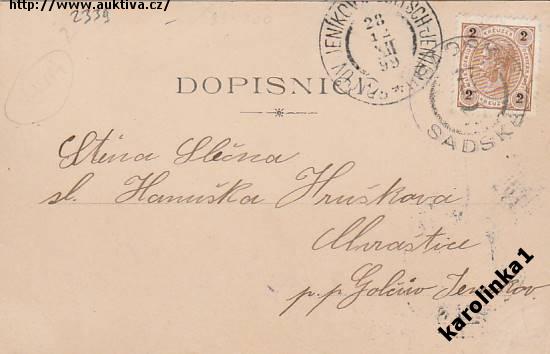 http://www.auktiva.cz/
2339
28
99
2 KREUZER 2
2 2
DOPISNICE
SADSKÁ
Ctěná Slečna
sl. Hanuška Hrušková
Chrastice
p. p. Golčův Jeníkov
karolinka1